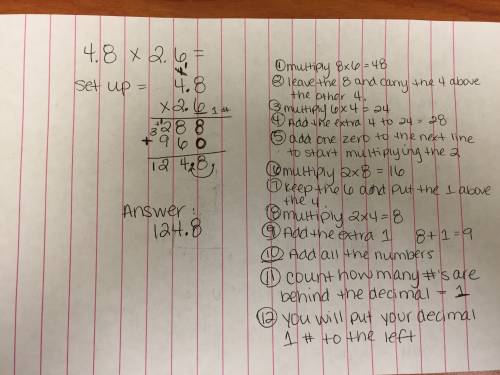 4.8 x 2.6 =
set up = 4.8
x 2.6 1#
288
+ 960
124.8
Answer:
124.8
① multiply 8x6=48
② leave the 8 and carry the 4 above
the other 4.
③ multiply 6x4=24
④ Add the extra 4 to 24 = 28
⑤ add one zero to the next line
to start multiplying the 2
⑥ multiply 2x8=16
⑦ Keep the 6 and put the 1 above
the 4.
⑧ multiply 2x4=8
⑨ Add the extra 1 8+1=9
⑩ Add all the numbers
⑪ count how many #'s are
behind the decimal = 1
⑫ you will put your decimal
1 # to the left